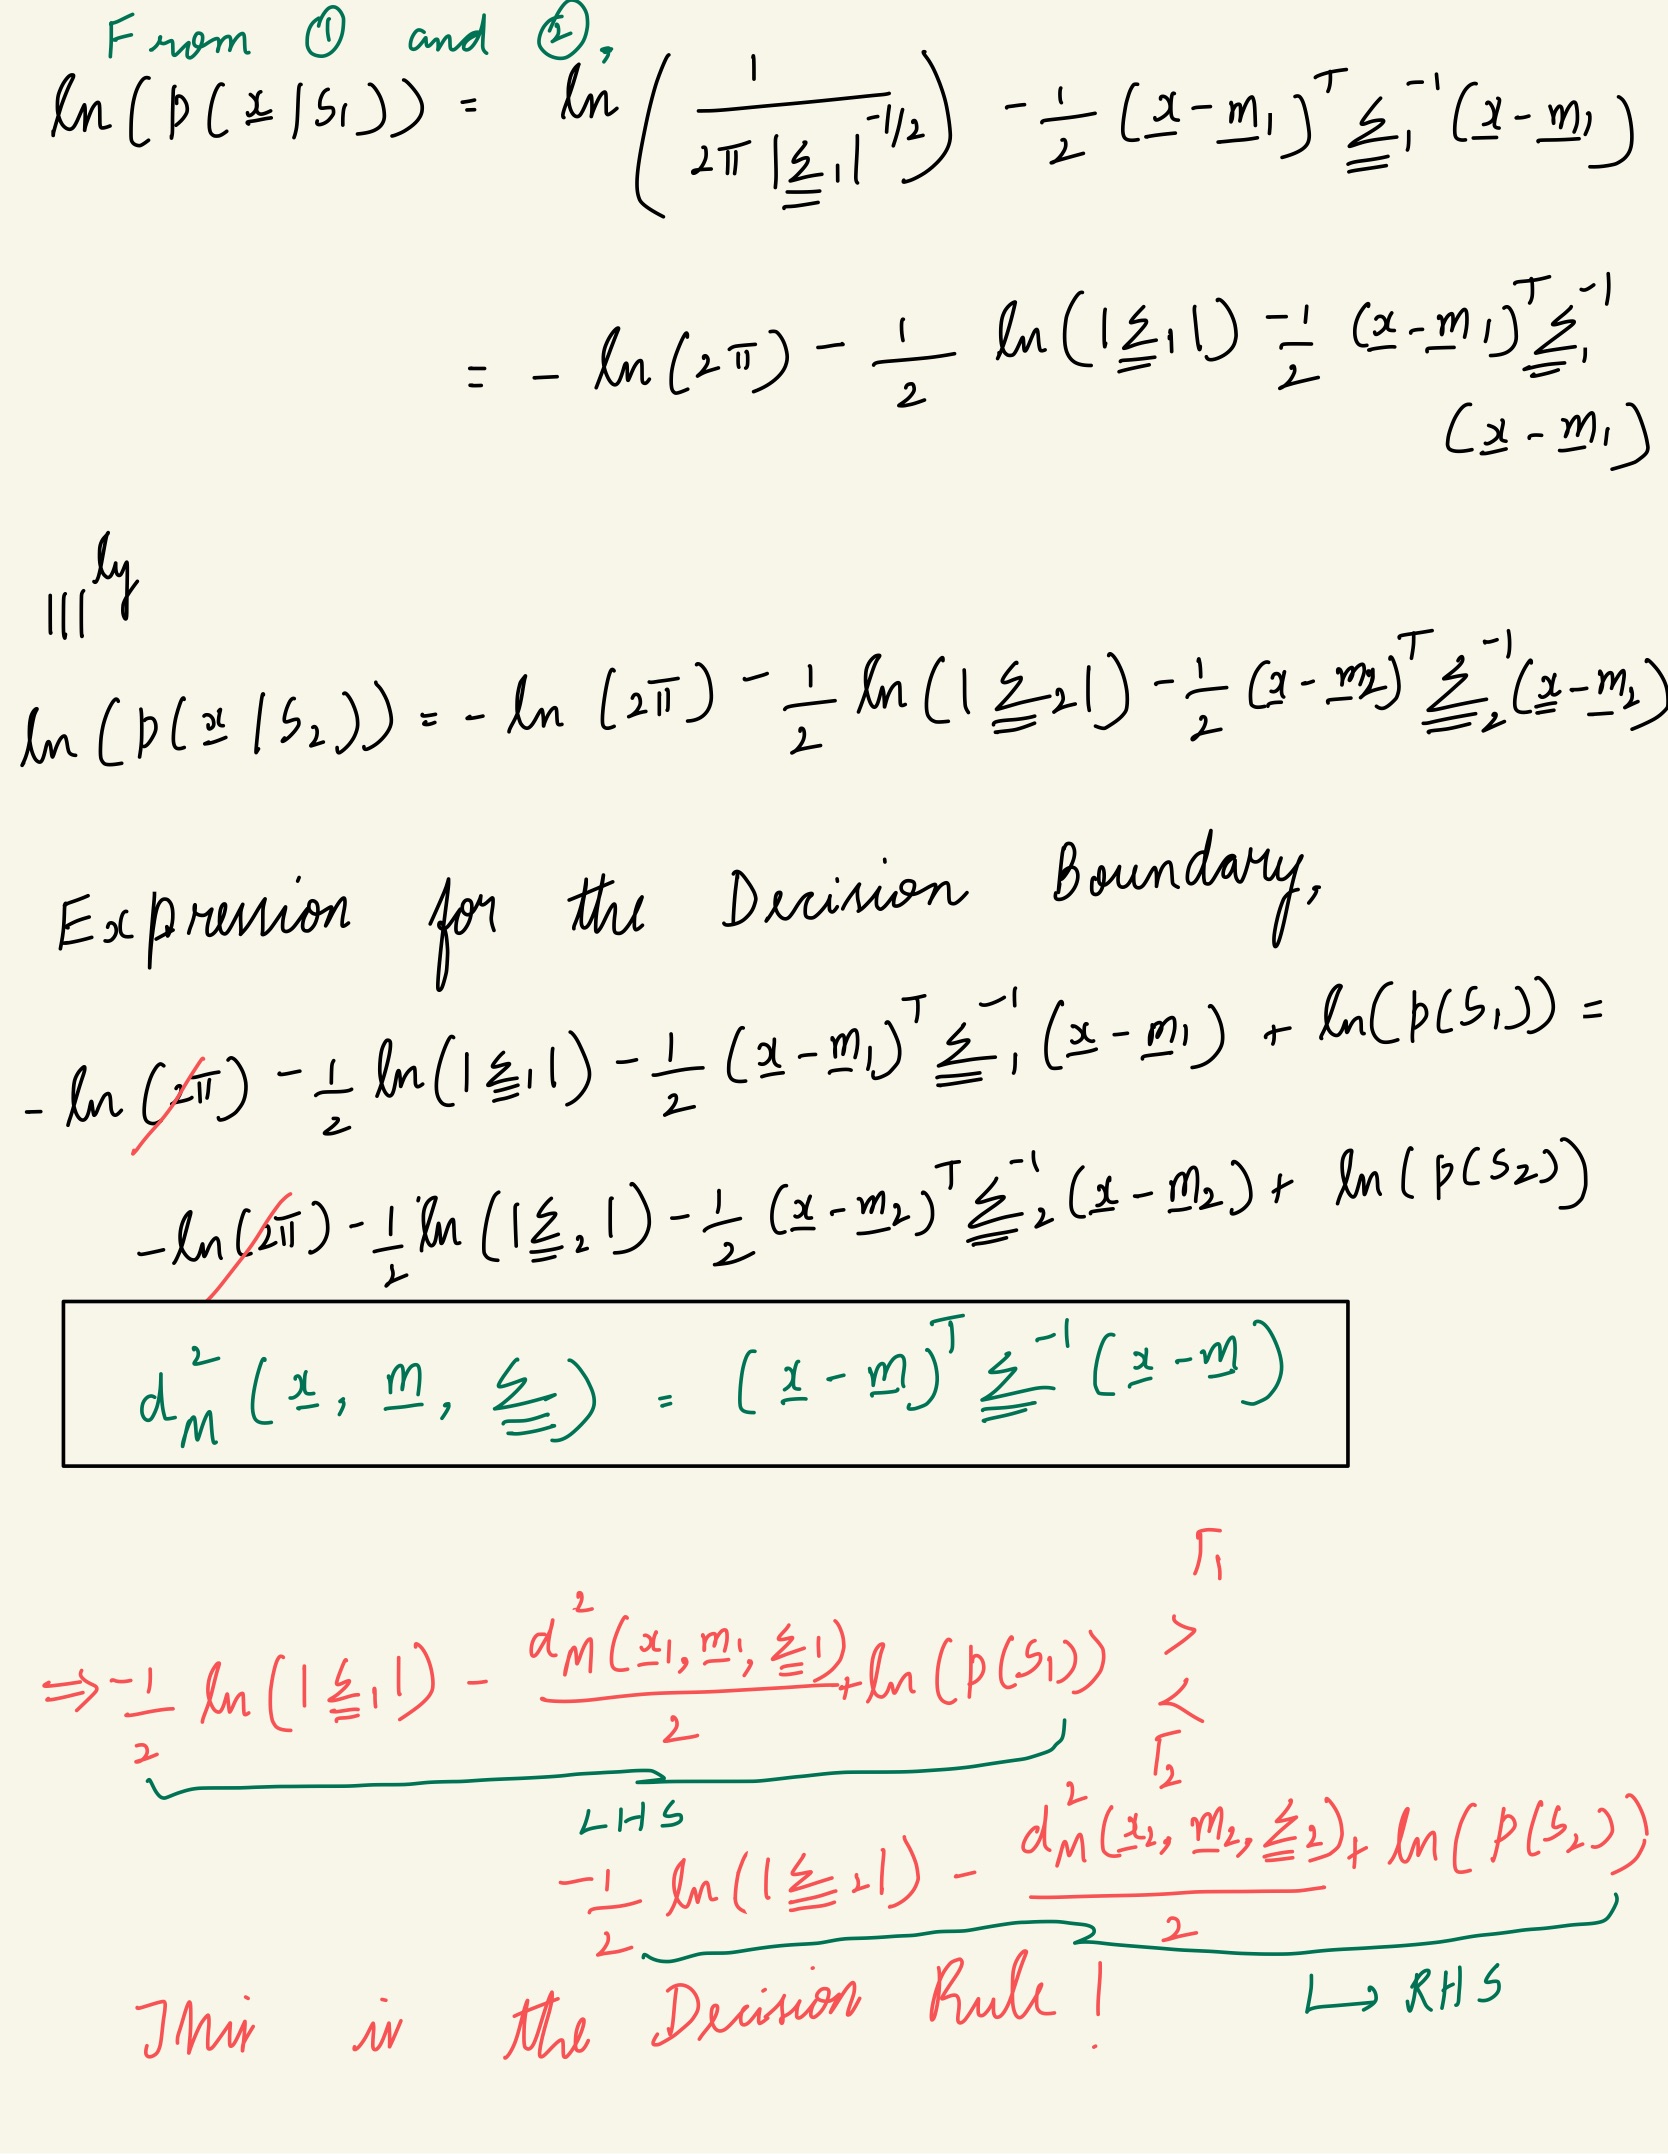 From ① and ②,
ln(p(x̲|S₁)) = ln(1 / (2π |Σ̳₁|^(-1/2))) - 1/2 (x̲ - m̲₁)ᵀ Σ̳₁⁻¹ (x̲ - m̲₁)
= - ln(2π) - 1/2 ln(|Σ̳₁|) - 1/2 (x̲ - m̲₁)ᵀ Σ̳₁⁻¹
(x̲ - m̲₁)
|||ly
ln(p(x̲|S₂)) = - ln(2π) - 1/2 ln(|Σ̳₂|) - 1/2 (x̲ - m̲₂)ᵀ Σ̳₂⁻¹ (x̲ - m̲₂)
Expression for the Decision Boundary,
- ln(2π) - 1/2 ln(|Σ̳₁|) - 1/2 (x̲ - m̲₁)ᵀ Σ̳₁⁻¹ (x̲ - m̲₁) + ln(p(S₁)) =
- ln(2π) - 1/2 ln(|Σ̳₂|) - 1/2 (x̲ - m̲₂)ᵀ Σ̳₂⁻¹ (x̲ - m̲₂) + ln(p(S₂))
d²_M (x̲, m̲, Σ̳) = (x̲ - m̲)ᵀ Σ̳⁻¹ (x̲ - m̲)
Γ₁
⇒ -1/2 ln(|Σ̳₁|) - d²_M(x̲₁, m̲₁, Σ̳₁)/2 + ln(p(S₁)) > <
Γ₂
LHS
-1/2 ln(|Σ̳₂|) - d²_M(x̲₂, m̲₂, Σ̳₂)/2 + ln(p(S₂))
↳ RHS
This is the Decision Rule !